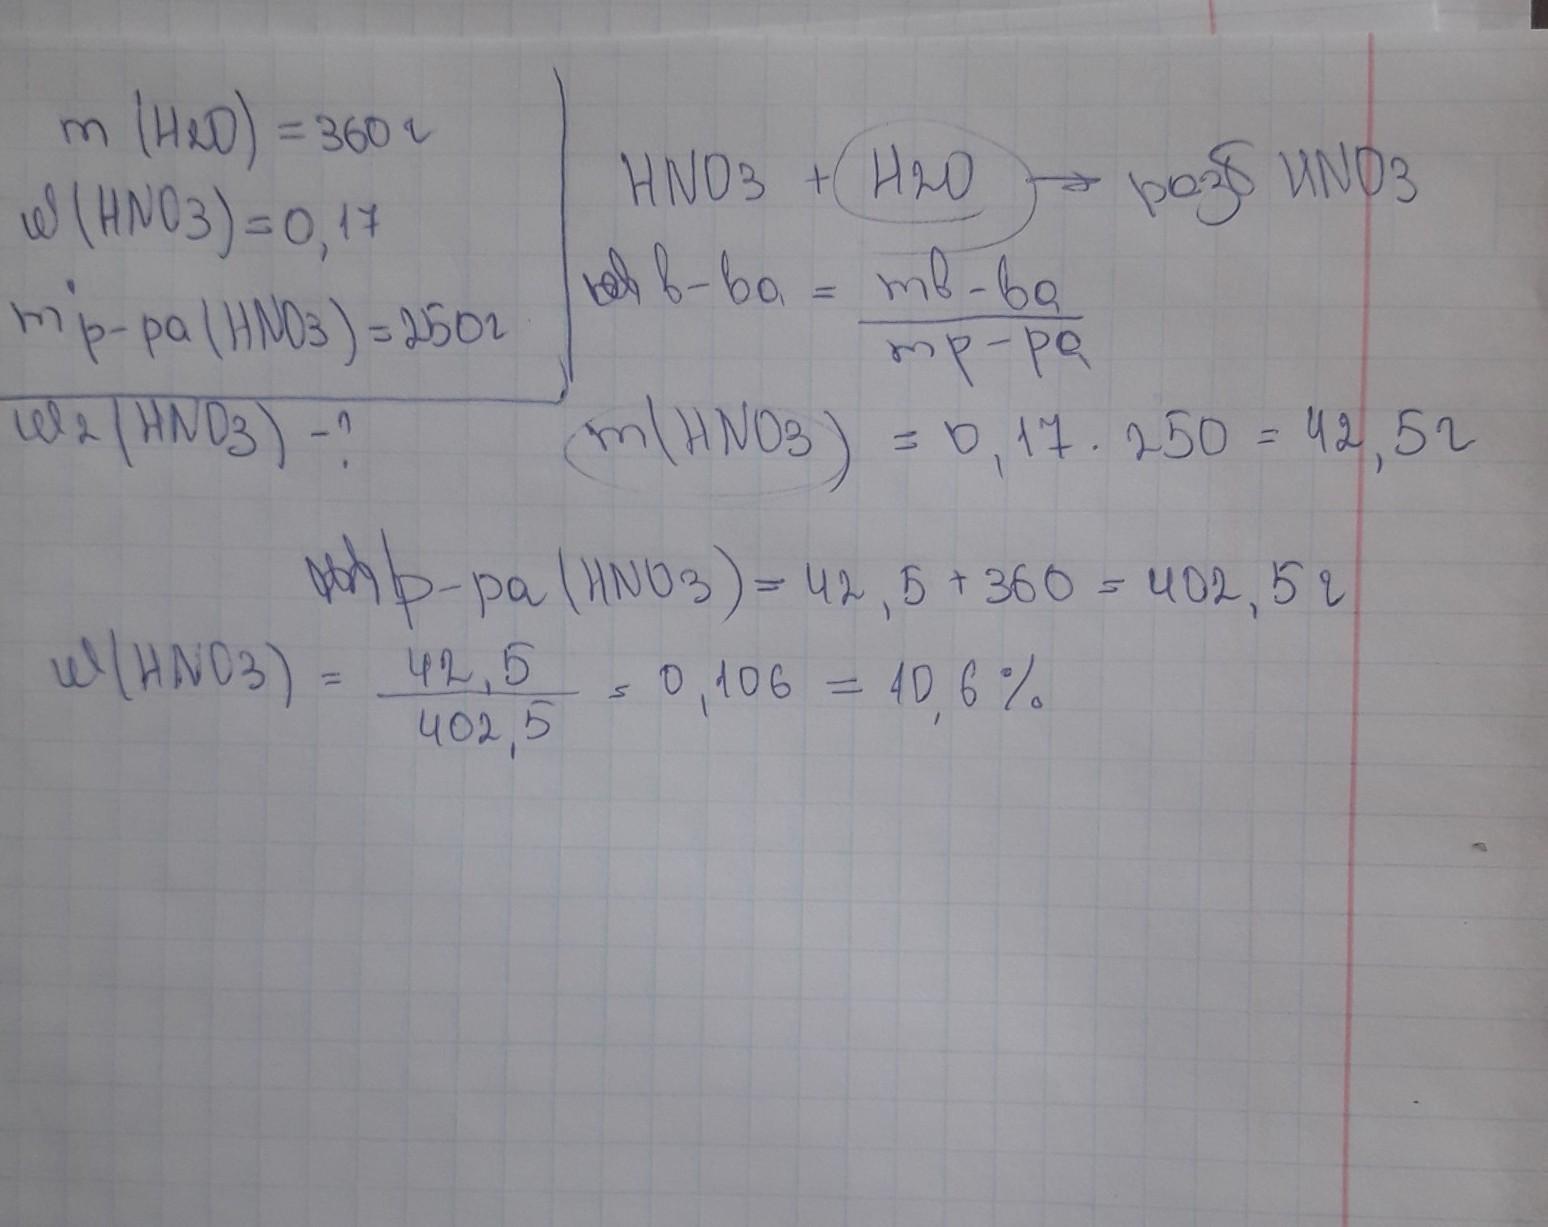 m (H2O) = 360 г
w (HNO3) = 0,17
m р-ра (HNO3) = 250г
w2 (HNO3) - ?
HNO3 + H2O → разб HNO3
в-ва = mв-ва / mр-ра
m(HNO3) = 0,17 · 250 = 42,5г
р-ра (HNO3) = 42,5 + 360 = 402,5 г
w (HNO3) = 42,5 / 402,5 = 0,106 = 10,6 %